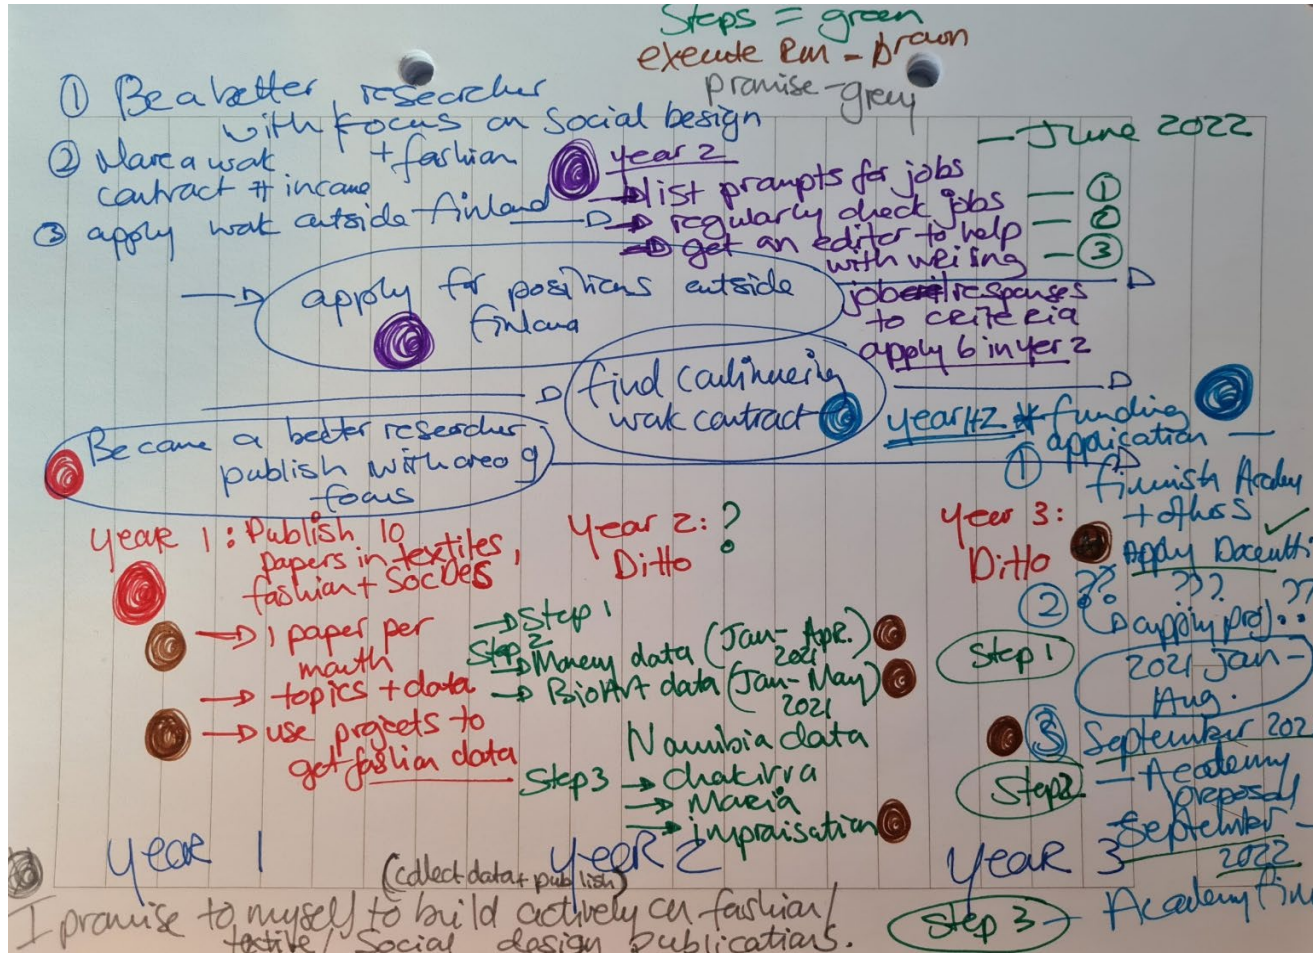 Steps = green
execute Rm - Brown
promise - grey
① Be a better researcher
with focus on Social Design
+ fashion
② Have a work
contract # income
③ apply work outside Finland
June 2022
year 2
list prompts for jobs
regularly check jobs
get an editor to help
with
job responses
to criteria
apply 6 in yer 2
①
②
③
apply for positions outside
Finland
find continueing
work contract
Become a better researcher
publish with area of
focus
year 1+2 * funding
application
① Finnish Academy
+ others ✓
Apply Docentti
② ?? ??? ??
apply prof
2021 Jan -
Aug.
③ September 202
Academy
proposal
September -
2022
Academy Fin
Year 1: Publish 10
papers in textiles,
fashion +
→ 1 paper per
month
→ topics + data
→ use projects to
get fashion data
Year 2: ?
Ditto
Year 3:
Ditto
→ Step 1
Step 2
data (Jan - Apr.
2021)
→ BioArt data (Jan - May)
2021
Namibia data
Step 3 →
→ Maria
→
Step 1
Step 2
Step 3 -
year 1
year 2
year 3
(collect data + publish)
I promise to myself to build actively on fashion/
textile/ Social design publications.